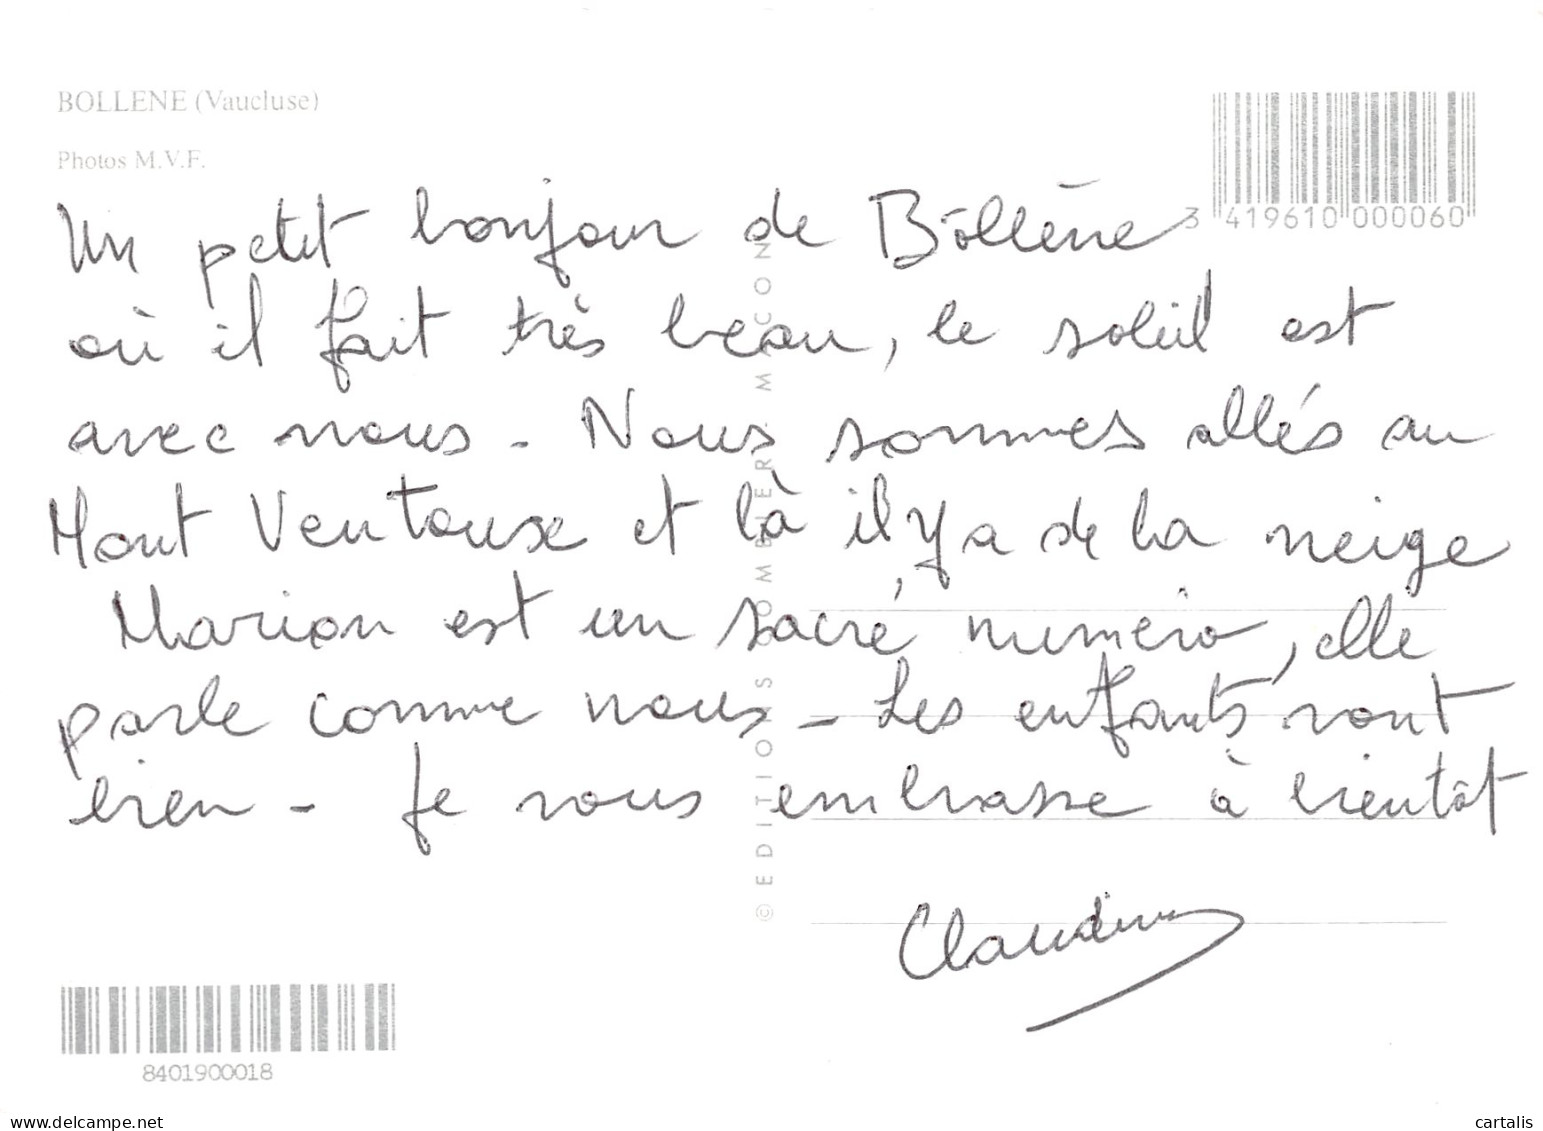 BOLLENE (Vaucluse)
Photos M.V.F.
3 419610 000060
Un petit bonjour de Bôllène
où il fait très beau, le soleil est
avec nous - Nous sommes allés au
Mont Ventoux et là il y a de la neige
Marion est un sacré numéro, elle
parle comme nous - Les enfants vont
bien - Je vous embrasse à bientôt
Claudine
© EDITIONS COMBIER MACON
8401900018
delcampe.net
cartalis